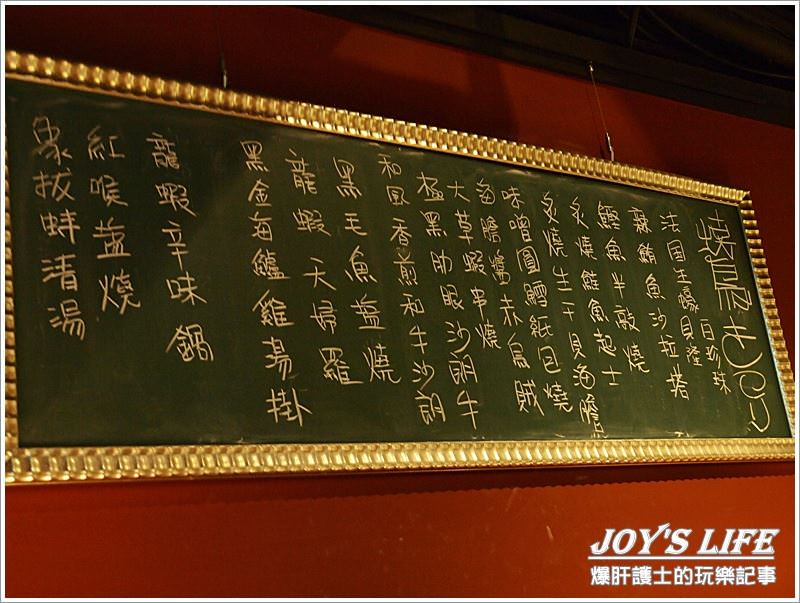 法國生蠔貝隆 白珍珠
辣鮪魚沙拉塔
鱈魚半敲燒
炙燒鮭魚起士
炙燒生干貝海膽
味噌圓鱈紙包燒
海膽醬赤烏賊
大草蝦串燒
極黑肋眼沙朗牛
和風香煎和牛沙朗
黑毛魚盐燒
龍蝦天婦羅
黑金海鱸雞湯掛
龍蝦辛味鍋
紅喉盐燒
象拔蚌清湯
JOY'S LIFE
爆肝護士的玩樂記事